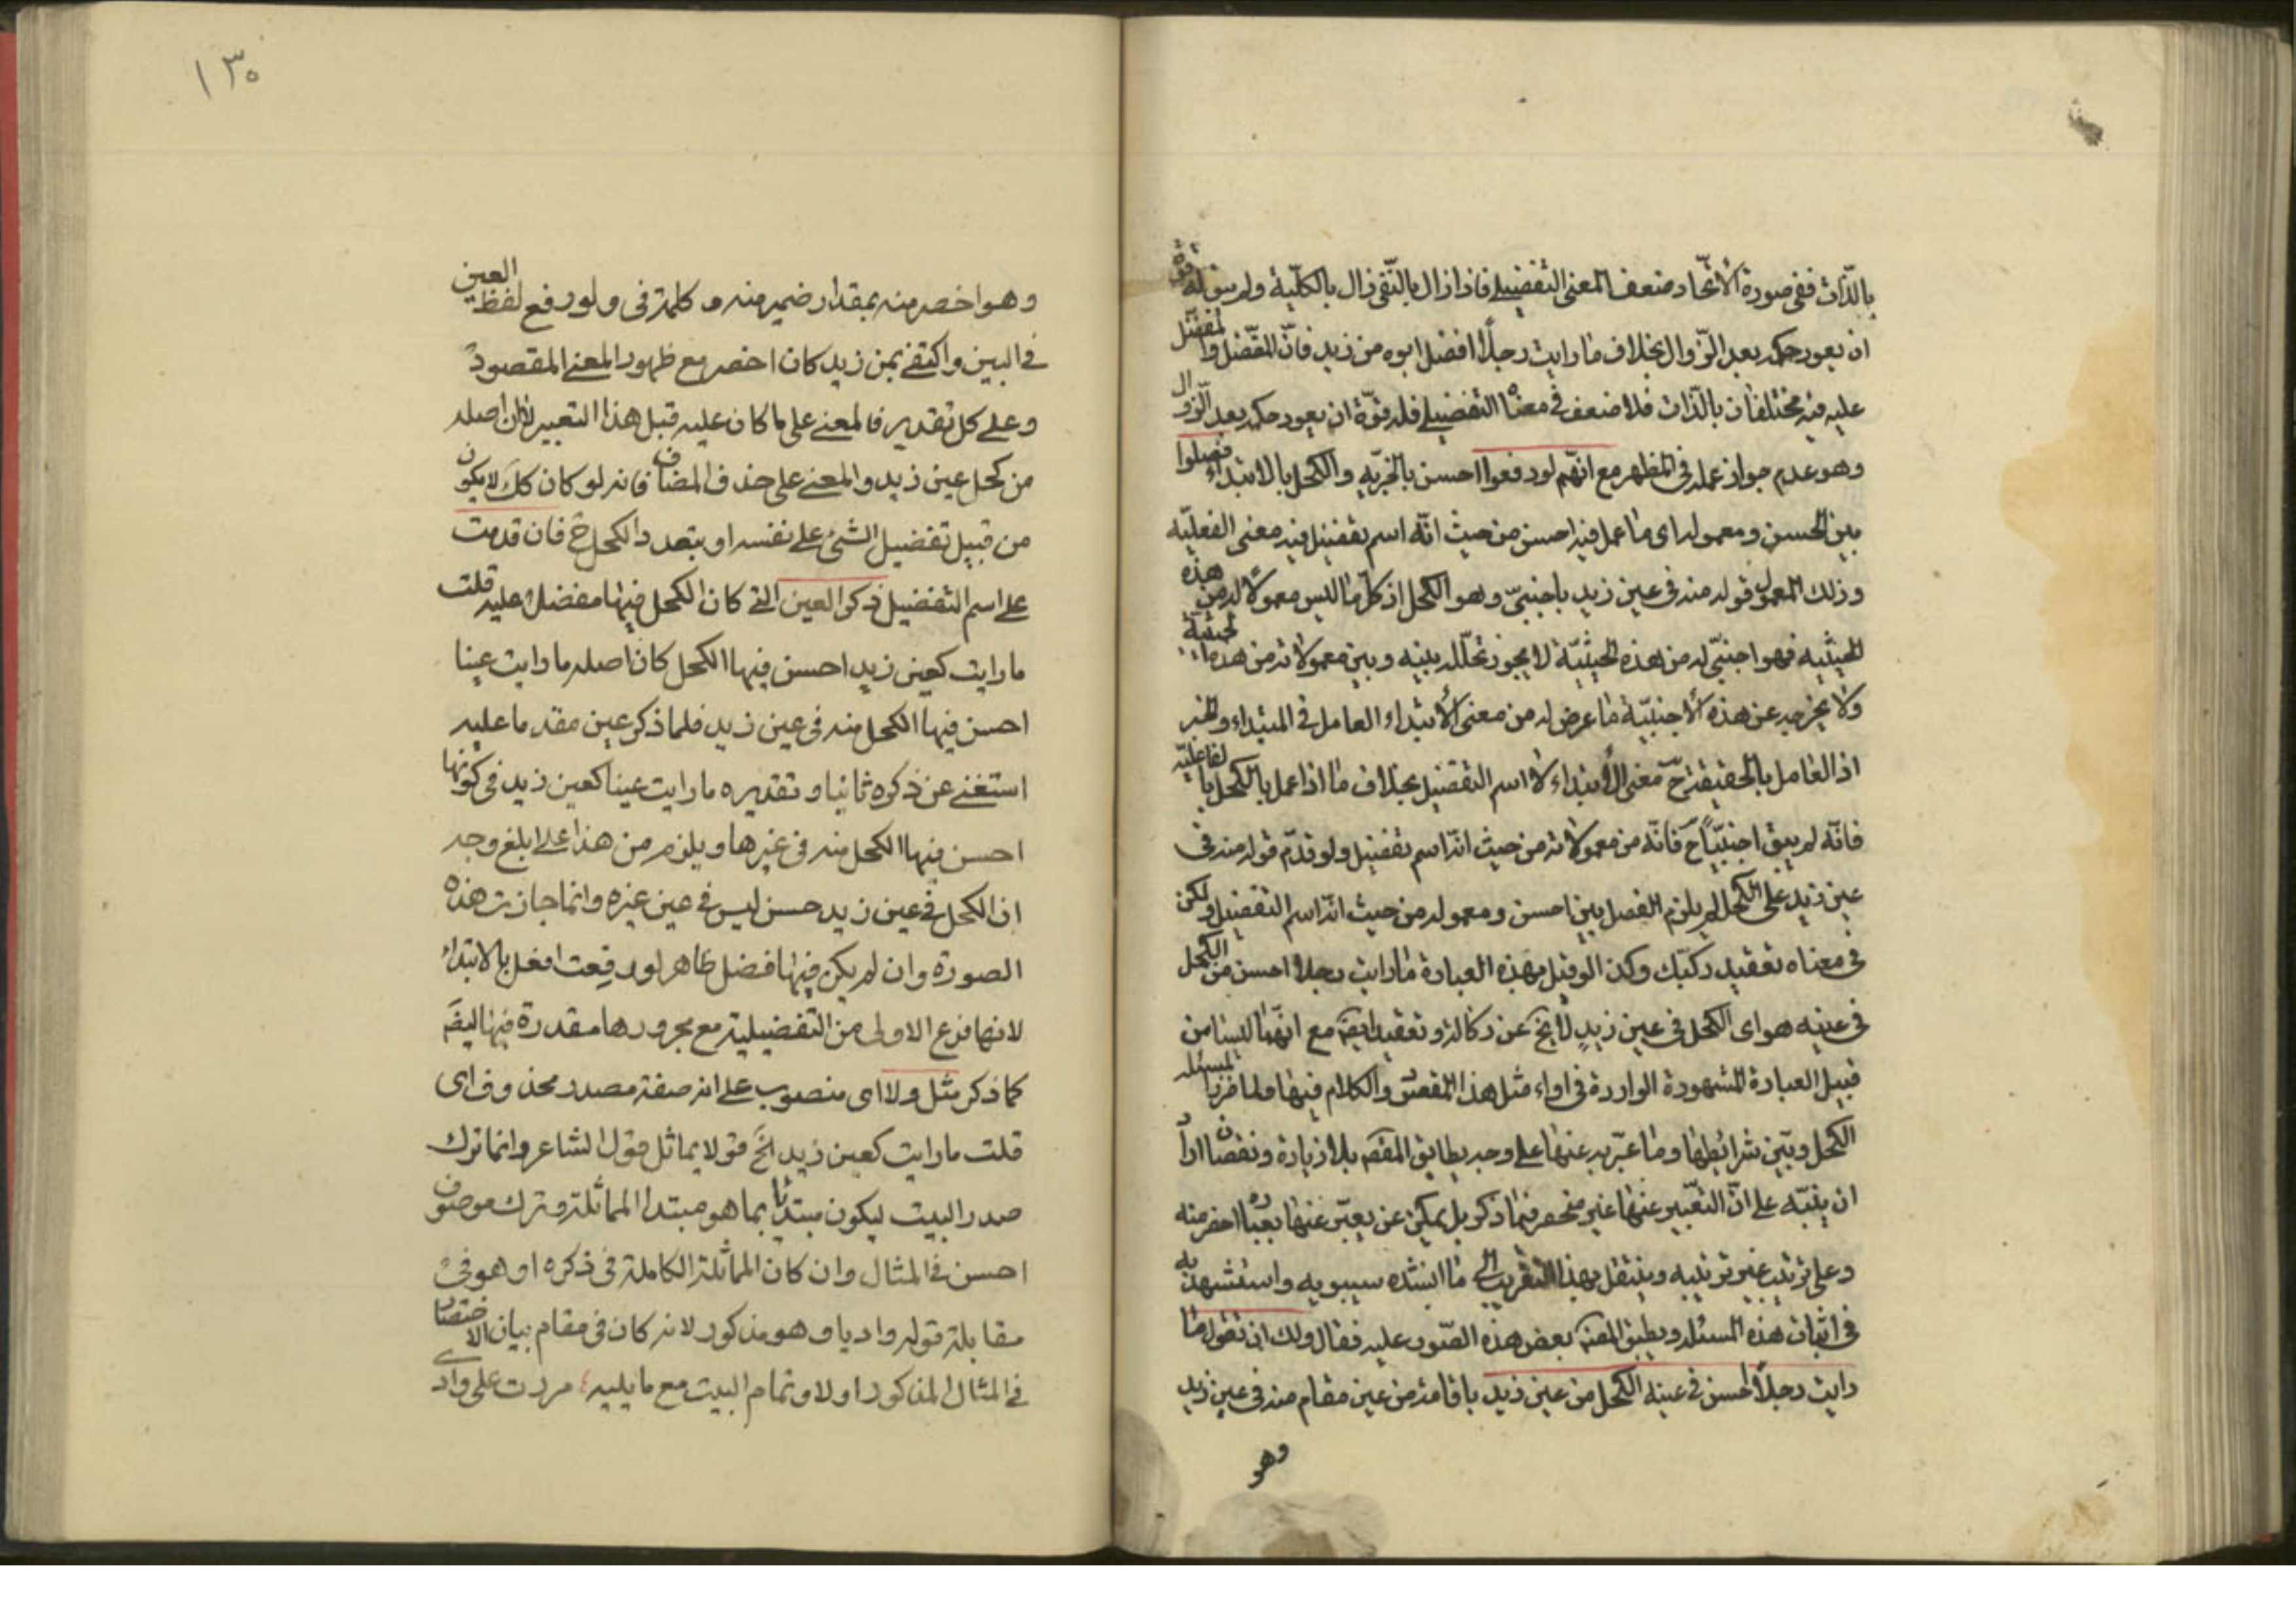 بالذّات ففى صورة الأتّحاد ضعف المعنى التفضيلي فاذا زال بالنّفى زال بالكلّية ولم يبق له قوة
ان يعود حكمه بعد الزّوال بخلاف ما رايت رجلاً افضل ابوه من زيد فانّ المفضّل والمفضّل
عليه فيه مختلفان بالذّات فلا ضعف فى معناه التفضيلي فله قوّة ان يعود حكمه بعد الزّوال
وهو عدم جواز عمله فى المظهر مع انّهم لو رفعوا احسن بالخبريّة والكحل بالابتداء فصلوا
بين احسن ومعموله اى ما عمل فيه احسن من حيث انّه اسم تفضيل فيه معنى الفعليّة
وذلك المعمول قوله منه فى عين زيد باجنبىّ وهو الكحل اذ كلّ ما ليس معمولاً له من هذه
الحيثية فهو اجنبىّ له من هذه الحيثيّة لا يجوز تخلّله بينه وبين معمولاته من هذه الحيثية
ولا يخرجه عن هذه الأجنبيّة ما عرض له من معنى الأبتداء العامل فى المبتداء والخبر
اذ العامل بالحقيقة ح معنى الأبتداء لا اسم التفضيل بخلاف ما اذا عمل بالكحل بالفاعليّة
فانّه لم يبق اجنبيّاً ح فانّه من معمولاته من حيث انّه اسم تفضيل ولو قدّم قوله منه فى
عين زيد على الكحل لم يلزم الفصل بين احسن ومعموله من حيث انّه اسم التفضيل ولكن
فى معناه تعقيد ركيك وكذا لو قيل بهذه العبارة ما رايت رجلا احسن من الكحل
فى عينه هو اى الكحل فى عين زيد لا يخ عن ركاكة وتعقيد ايضَ مع انّهما ليسا من
قبيل العبارة المشهورة الواردة فى اداء مثل هذا المقصود والكلام فيها ولما قرر المسئله
الكحل وبيّن شرائطها وما عبّر به عنها على وجه يطابق المقصَ بلا زيادة ونقصان اراد
ان ينبّه على انّ التعبير عنها غير منحصر فيما ذكر بل يمكن عن يعبّر عنها بعبارة اخصر منه
وعلى ترتيب غير ترتيبه وينتقل بهذا التقريب الى ما انشده سيبويه واستشهد به
فى اثبات هذه المسئله وبطبق المصَ بعض هذه الصّور عليه فقال ولك ان تقول ما
رايت رجلاً احسن فى عينه الكحل من عين زيد باقامة من عين مقام منه فى عين زيد
وهو
١٣٠
وهو اخصر منه بمقدار ضمير منه و كلمة فى ولو رفع لفظ العين
فى البين واكتفى بمن زيد كان اخصر مع ظهور المعنى المقصود
وعلى كل تقدير فالمعنى على ما كان عليه قبل هذا التعبير لان اصله
من كحل عين زيد والمعنى على حذف المضاف فانه لو كان ككَ لا يكون
من قبيل تفضيل الشئ على نفسه او يتعدد الكحل ح فان قدمت
على اسم التفضيل ذكر العين التى كان الكحل فيها مفضلا عليه قلت
ما رايت كعين زيد احسن فيها الكحل كان اصله ما رايت عينا
احسن فيها الكحل منه فى عين زيد فلما ذكر عين مقدما عليه
استغنى عن ذكره ثانيا و تقديره ما رايت عينا كعين زيد فى كونها
احسن فيها الكحل منه فى غيرها ويلزم من هذا على ابلغ وجه
ان الكحل فى عين زيد حسن ليس فى عين غيره وانما جازت هذه
الصورة وان لم يكن فيها فصل ظاهر لو رفعت افعل بالابتداء
لانها فرع الاولى من التفضيلية مع مجرورها مقدرة فيها ايضَ
كما ذكر مثل ولا اى منصوب على انه صفة مصدر محذوف اى
قلت ما رايت كعين زيد الخَ قولا يماثل قول الشاعر وانما ترك
صدر البيت ليكون مبتديا بما هو مبتدا المماثلة وترك موصوف
احسن فى المثال وان كان المماثلة الكاملة فى ذكره او هو فى
مقابلة قوله واديا و هو مذكور لانه كان فى مقام بيان الاختصار
فى المثال المذكور اولا و تمام البيت مع ما يليه مررت على وادى